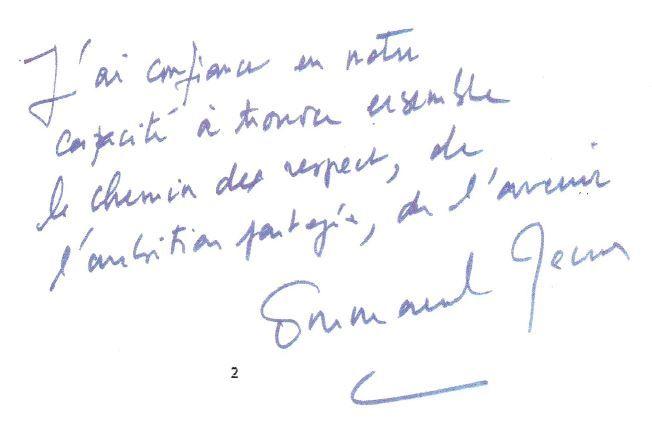 J'ai confiance en notre
capacité à trouver ensemble
le chemin du respect, de
l'ambition partagée, de l'avenir
Emmanuel
2